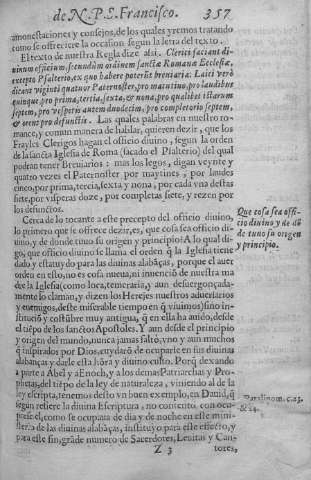 de N. P. S. Francisco. 357
amonestaciones y consejos, de los quales yremos tratando
como se offreciere la occasion segun la letra del texto.
El texto de nuestra Regla dize assi. Clerici faciant di-
uinum officium, secundùm ordinem sanctæ Romanæ Ecclesiæ,
excepto Psalterio, ex quo habere poterũt breuiaria: Laici verò
dicant viginti quatuor Paternoster, pro matutino, pro laudibus
quinque, pro prima, tertia, sexta, & nona, pro qualibet istarum
septem, pro vesperis autem duodecim, pro completorio septem,
& orent pro defunctis. Las quales palabras en nuestro ro-
mance, y comun manera de hablar, quieren dezir, que los
Frayles Clerigos hagan el officio diuino, segun la orden
de la sancta Iglesia de Roma (sacado el Psalterio) del qual
podran tener Breuiarios: mas los legos, digan veynte y
quatro vezes el Paternoster por maytines, por laudes
cinco, por prima, tercia, sexta y nona, por cada vna destas
siete, por visperas doze, por completas siete, y rezen por
los defunctos.
Cerca de lo tocante a este precepto del officio diuino,
lo primero que se offrece dezir, es, que cosa sea officio di-
uino, y de donde tuuo su origen y principio? A lo qual di-
go, que officio diuino se llama el orden q̃ la Iglesia tiene
dado y estatuydo para las diuinas alabãças, porque el auer
orden en esto, no es cosa nueua, ni inuenciõ de nuestra ma
dre la Iglesia (como loca, temeraria, y aun desuergonçada-
mente lo claman, y dizen los Herejes nuestros aduersarios
y enemigos, deste miserable tiempo en q̃ viuimos) sino in-
stituciõ y costũbre muy antigua, q̃ en ella ha auido, desde
el tiẽpo de los sanctos Apostoles. Y aun desde el principio
y origen del mundo, nunca jamas falto, vno y aun muchos
q̃ inspirados por Dios, cuydarõ de ocuparse en sus diuinas
alabanças y darle esta hõra y diuino culto. Porq̃ dexando
a parte a Abel y a Enoch, y a los demas Patriarchas y Pro-
phetas, del tiẽpo de la ley de naturaleza, viniendo al de la
ley escripta, tenemos desto vn buen exemplo, en Dauid, q̃
segun refiere la diuina Escriptura, no contento con ocu-
parse el, como se ocupaua de dia y de noche en el ministe-
rio de las diuinas alabãças, instituyo para este effecto, y
para este fin, grãde numero de Sacerdotes, Leuitas y Can-
Z 3 tores,
Que cosa sea offi-
cio diuino y de dõ
de tuuo su origen
y principio.
1. Paralipom. c. 23.
& 24.